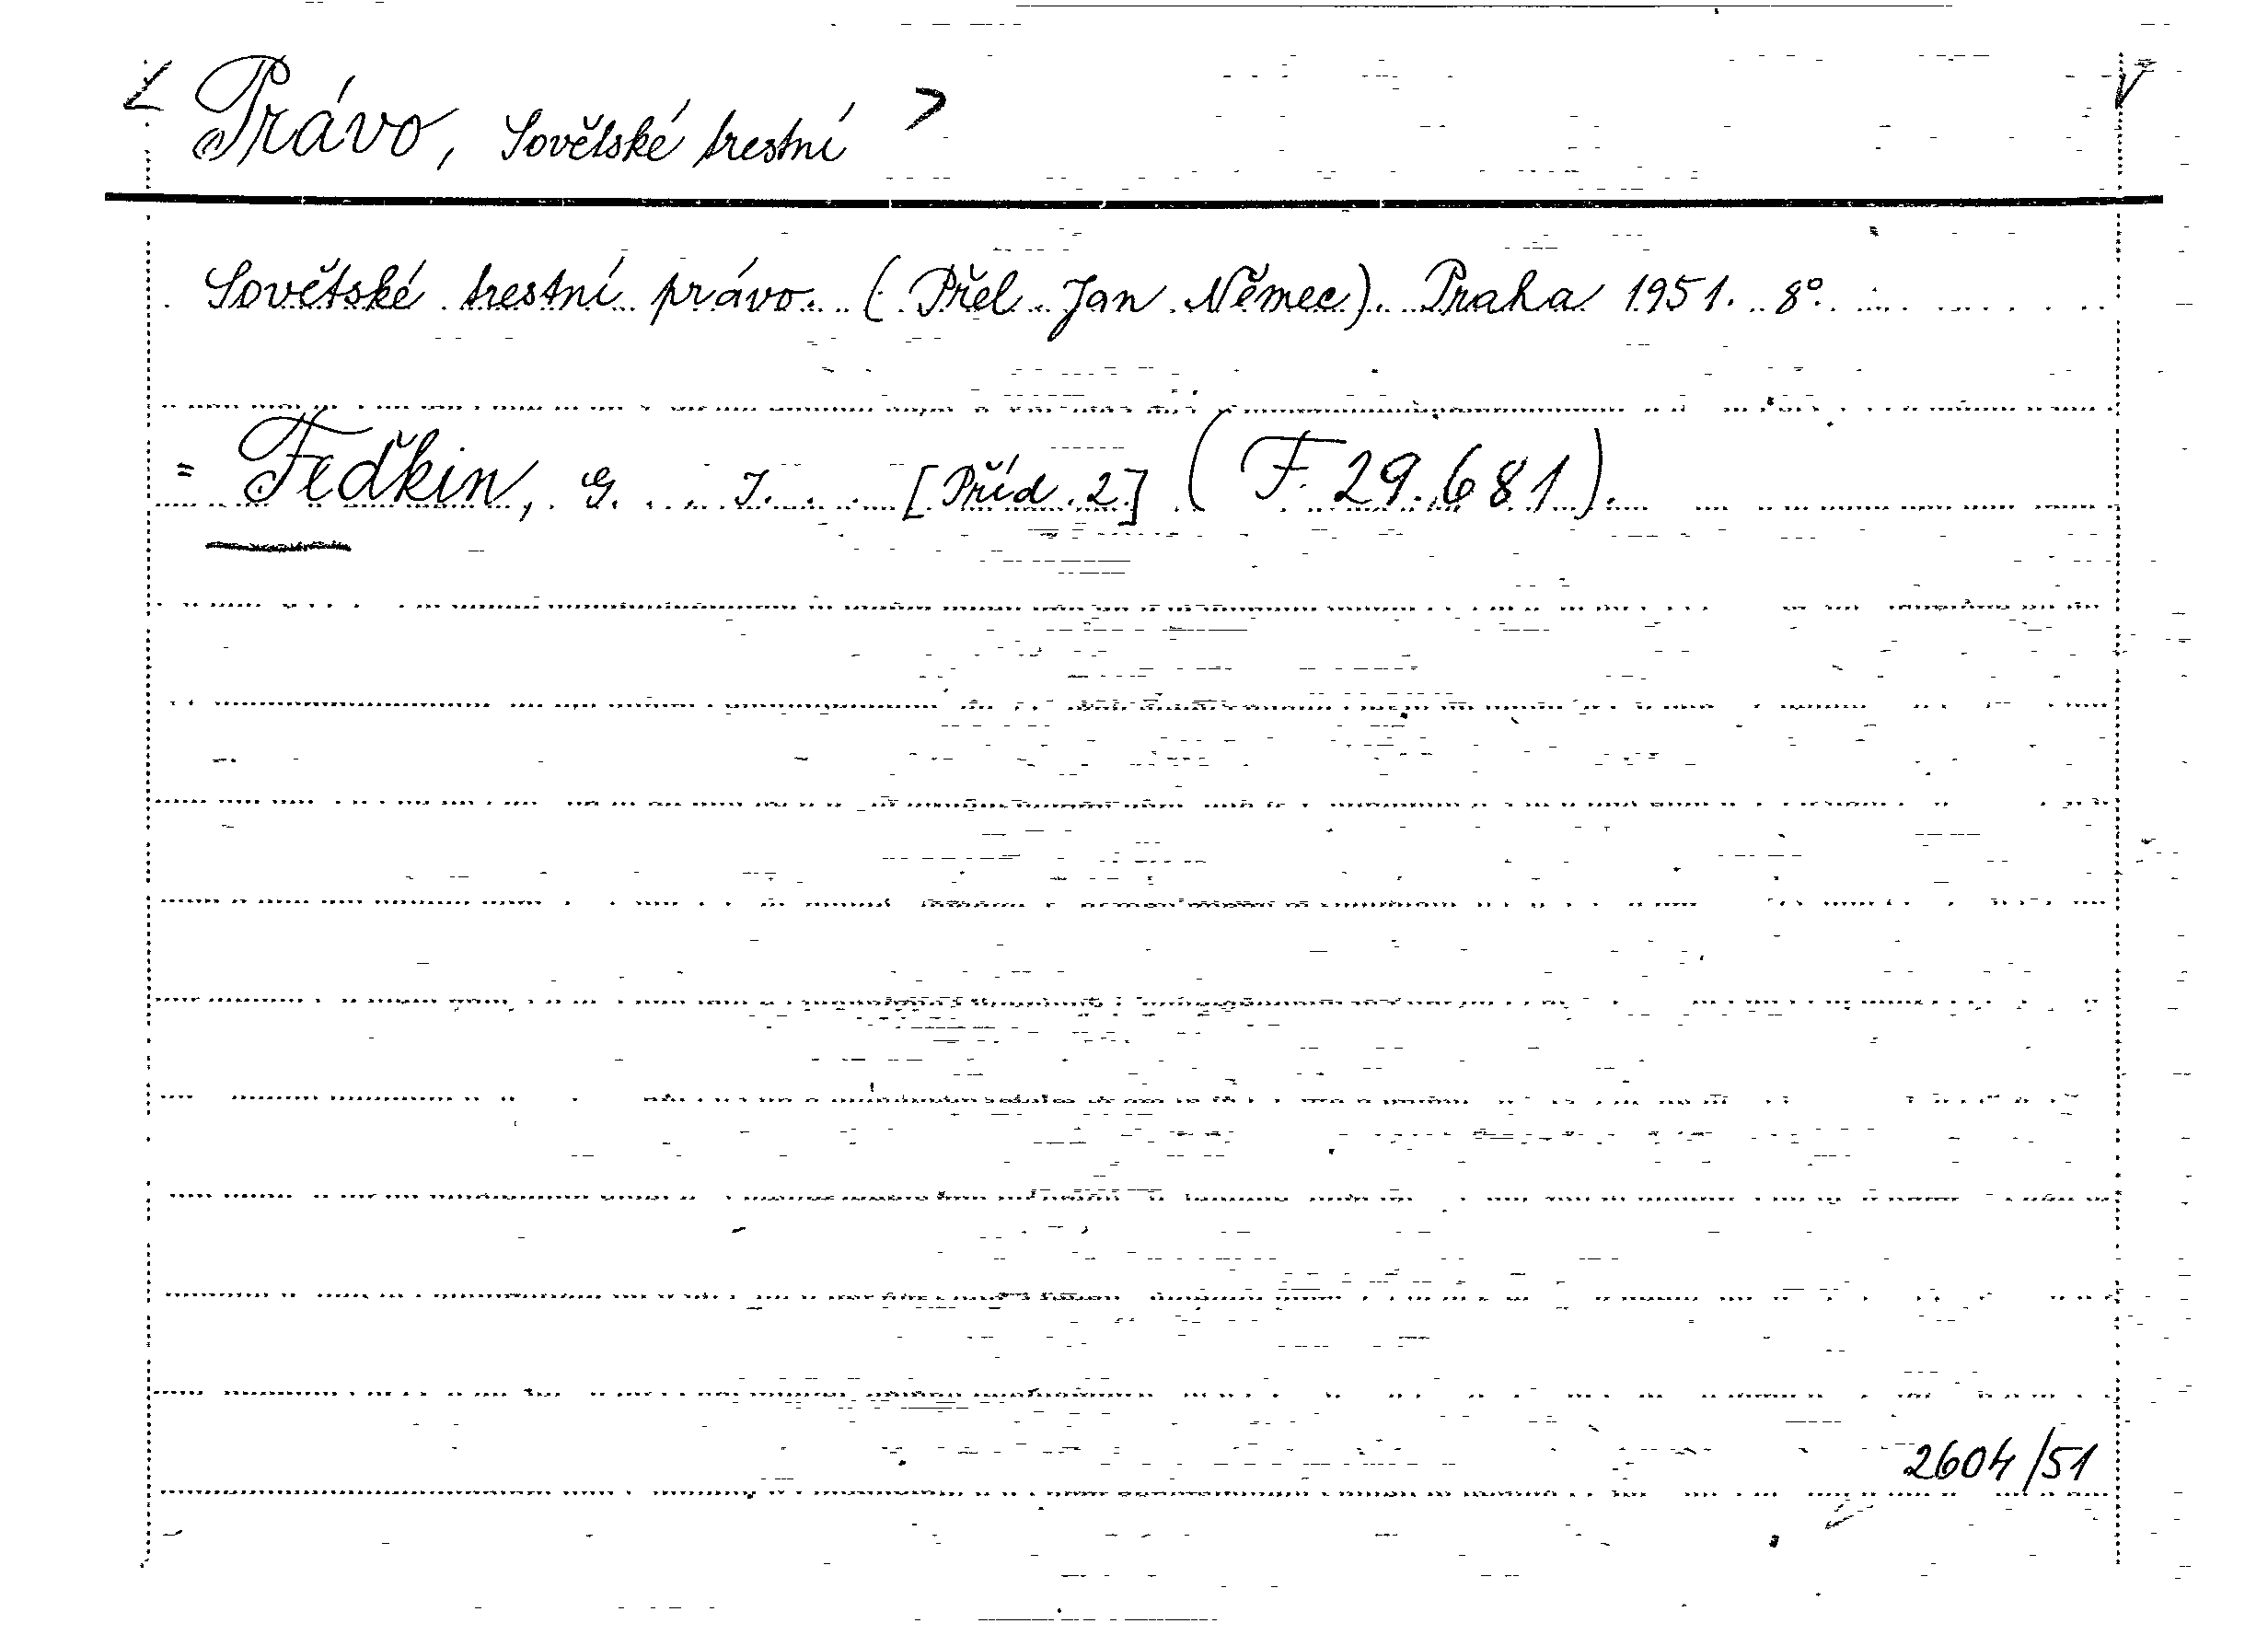 < Právo, Sovětské trestní >
Sovětské trestní právo. (Přel. Jan Němec). Praha 1951. 8°.
= Feďkin, G. I. [Příd. 2] (F 29.681).
2604/51